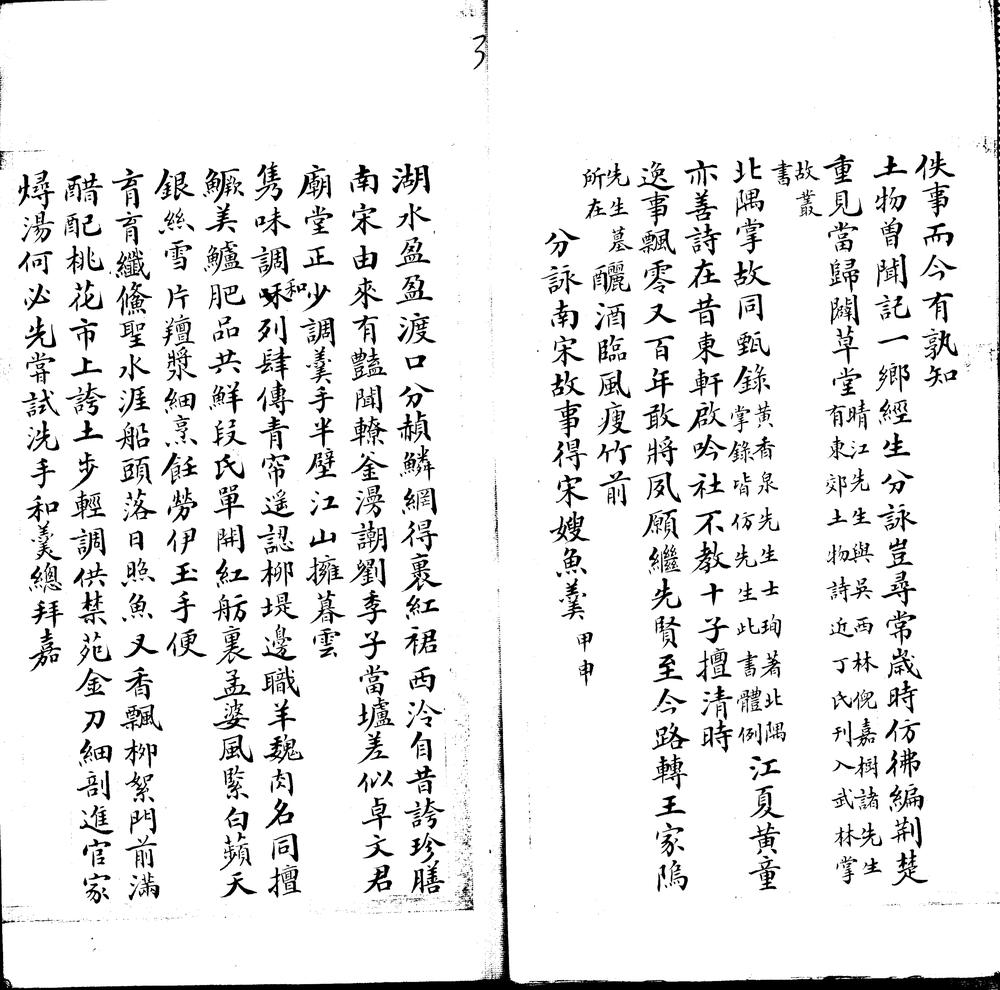 佚事而今有孰知
土物曾聞記一鄉經生分詠豈尋常歲時仿彿編荆楚
重見當歸闢草堂晴江先生與吳西林倪嘉樹諸先生
有東郊土物詩近丁氏刊入武林掌
故叢
書
北隅掌故同甄錄黃香泉先生士珣著北隅
掌錄皆仿先生此書體例江夏黃童
亦善詩在昔東軒啟吟社不教十子擅清時
逸事飄零又百年敢將夙願繼先賢至今路轉王家隖
先生墓
所在釃酒臨風瘦竹前
分詠南宋故事得宋嫂魚羹甲申
湖水盈盈渡口分赬鱗網得裹紅裙西泠自昔誇珍膳
南宋由來有豔聞轑釜漫謿劉季子當壚差似卓文君
廟堂正少調羹手半壁江山擁暮雲
雋味調和列肆傳青帘遥認柳堤邊職羊魏肉名同擅
鱖美鱸肥品共鮮段氏單開紅舫裏孟婆風緊白蘋天
銀絲雪片羶漿細烹飪勞伊玉手便
育育纖鯈聖水涯船頭落日照魚叉香飄柳絮門前滿
醋配桃花市上誇土步輕調供禁苑金刀細剖進官家
燖湯何必先嘗試洗手和羹總拜嘉
3